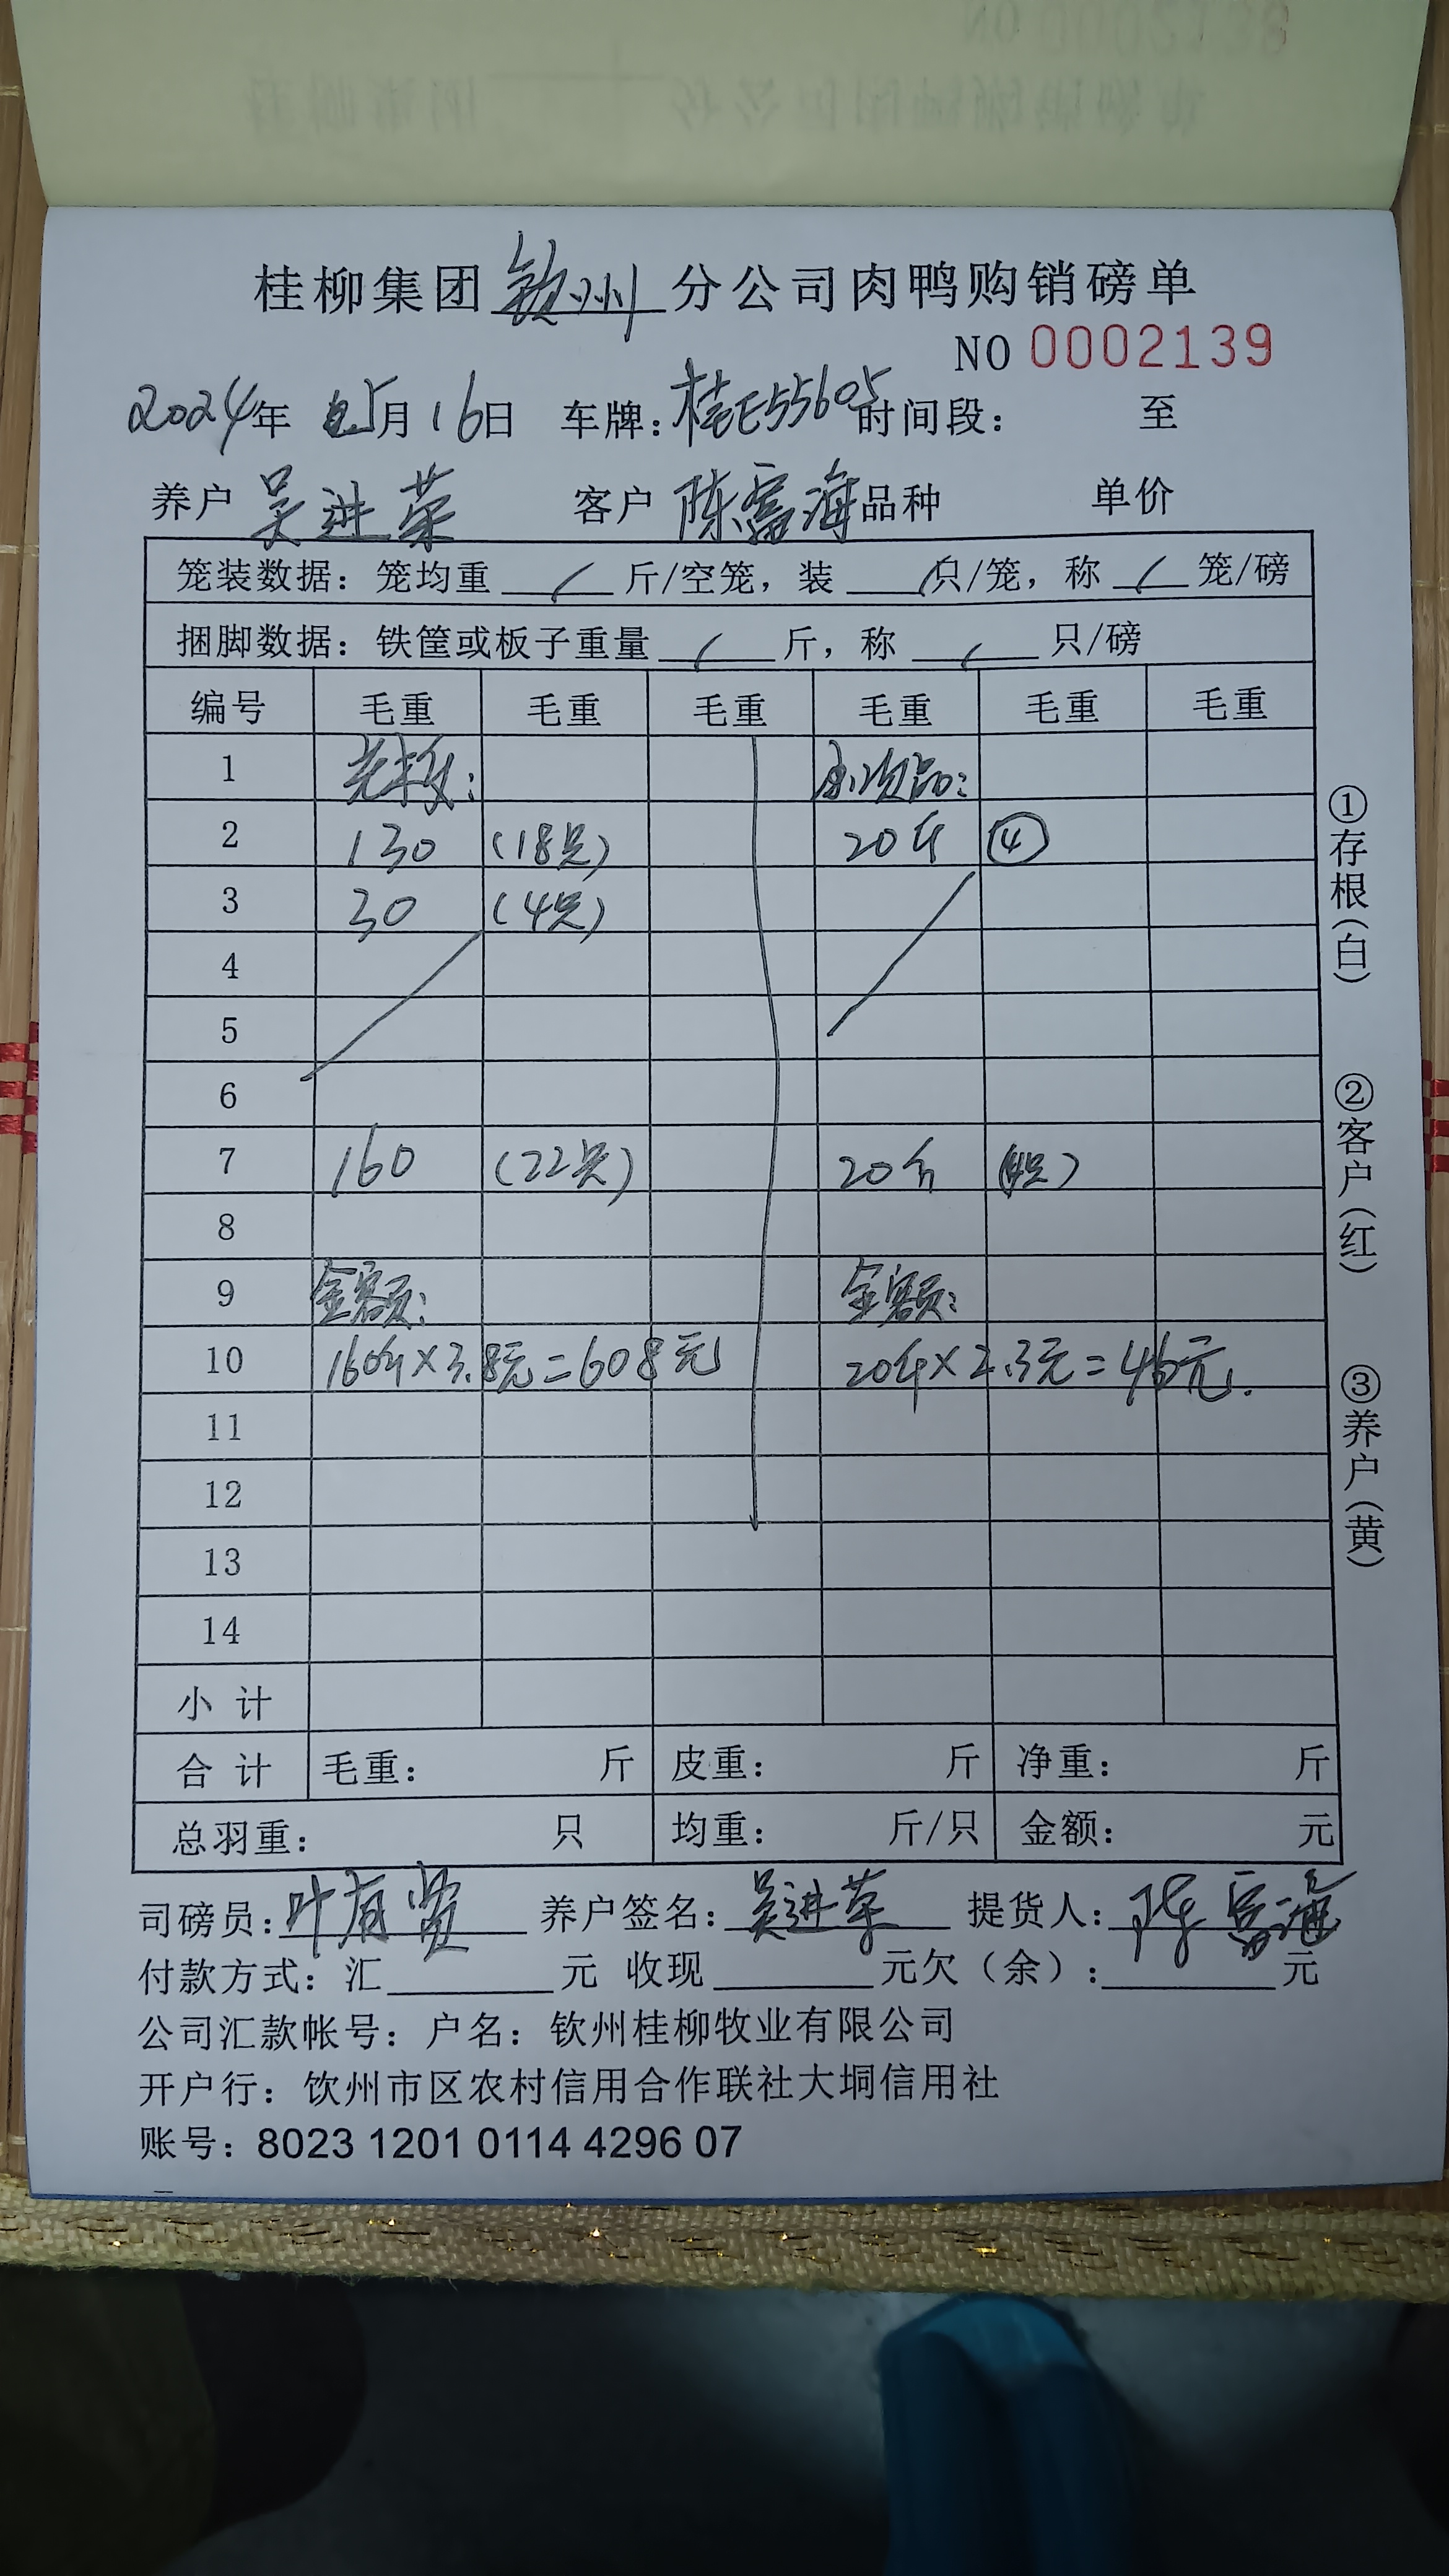 桂柳集团 钦州 分公司肉鸭购销磅单
NO 0002139
2024年 5月16日 车牌:桂E55605 时间段: 至
养户 吴进荣 客户 陈富海 品种 单价
笼装数据: 笼均重 / 斤/空笼, 装 / 只/笼, 称 / 笼/磅
捆脚数据: 铁筐或板子重量 / 斤, 称 / 只/磅
编号 毛重 毛重 毛重 毛重 毛重 毛重
1 次品:
2 130 (18只) 20斤 ④
3 30 (4只)
4
5
6
7 160 (22只) 20斤 (4只)
8
9 金额: 金额:
10 160斤×3.8元=608元 20斤×2.3元=46元.
11
12
13
14
小计
合计 毛重: 斤 皮重: 斤 净重: 斤
总羽重: 只 均重: 斤/只 金额: 元
司磅员:叶有贤 养户签名:吴进荣 提货人:陈富海
付款方式: 汇 元 收现 元欠(余): 元
公司汇款帐号: 户名: 钦州桂柳牧业有限公司
开户行: 钦州市区农村信用合作联社大垌信用社
账号: 8023 1201 0114 4296 07
①存根(白)
②客户(红)
③养户(黄)